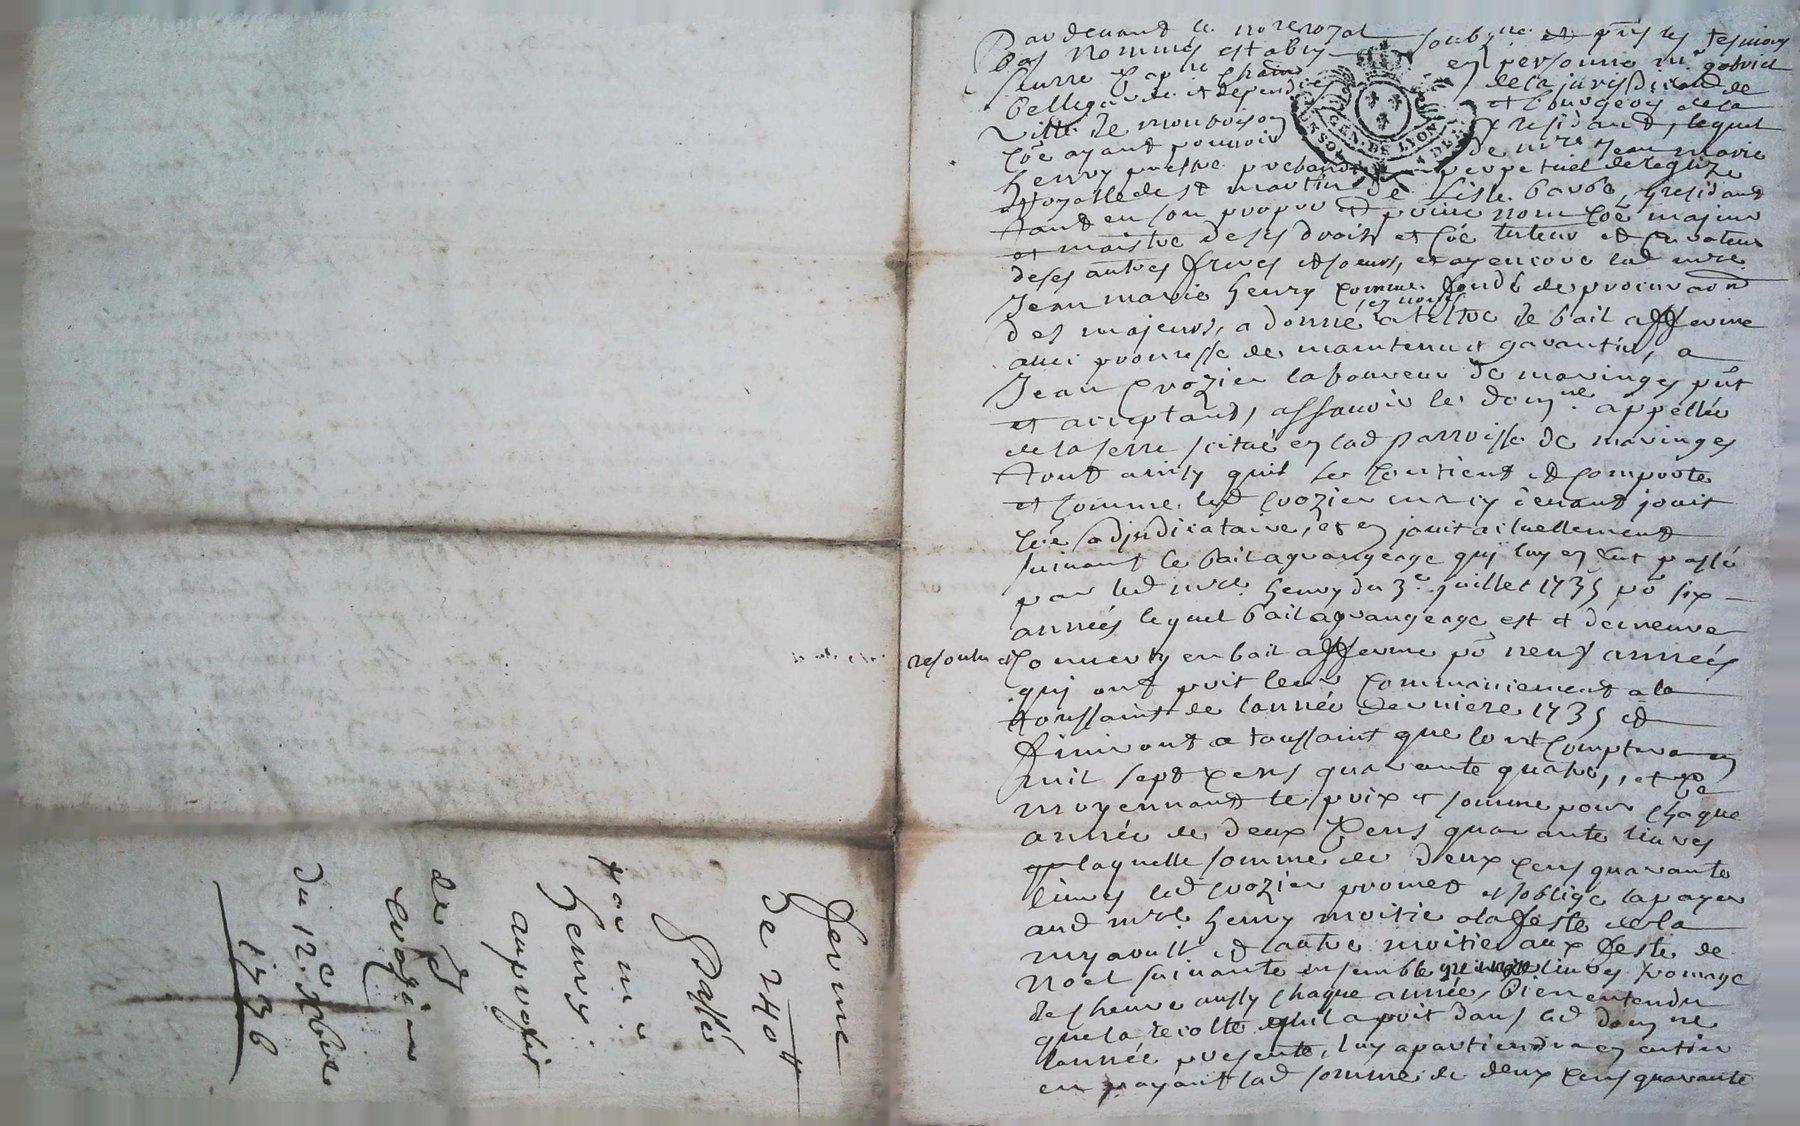 Pardevant le no.re royal soubz.né et pñs les tesmoins
bas nommés estably en personne m. gabriel
de la jurisdiction de
bellegarde et dependces et bourgeois de la
ville de monbrison y residant, lequel
coë ayant pouvoir de m.re Jean marie
henry prestre prebandier perpetuel de leglize
Royalle de st martin de Lisle barbe, y residant
tant en son propre et privé nom coë majeur
et maistre de ses droits et coë tuteur et curateur
de ses autres freres et soeurs, et ayencore lad m.re
Jean marie henry comme fondé de procura.on
des majeurs, a donné a tiltre de bail afferme
avec promesse de maintenir et garantir, a
Jean Crozier laboureur de maringes pñt
et acceptant, assavoir le dom.ne appellée
de la serre scitué en lad parroisse de maringes
tout ainsy quil se contient et comporte
et comme led Crozier en a cy devant jouit
coë adjudicataire, et en jouit actuellement
suivant le bail a grangeage qui luy en fut passé
par led m.re henry du 3.e juillet 1735 po.r six
années lequel bail a grangeage est et demeure
resoulu et converty en bail afferme po.r neuf années
qui ont prit leur commancement a la
toussaint de lannée derniere 1735 et
finiront a toussaint que lont comptera
mil sept cens quarante quatre, et ce
moyennant le prix et somme pour chaque
année de deux cens quarante livres
laquelle somme de deux cens quarante
livres led Crozier promet et soblige la payer
aud m.re henry moitié a la feste de la
myaoust et lautre moitié aux feste de
Noel suivante ensemble livres fromage
de chevre aussy chaque année, Bien entendu
que la recolte quil a prit dans led dom.ne
lannée presente, luy apartiendra en entier
en payant lad somme de deux cens quarante
GEN. DE LYON
ferme
de 240ᵗᵗ
Passé
par m.re
henry
au profit
de J
Crozier
du 12.e xbre
1736